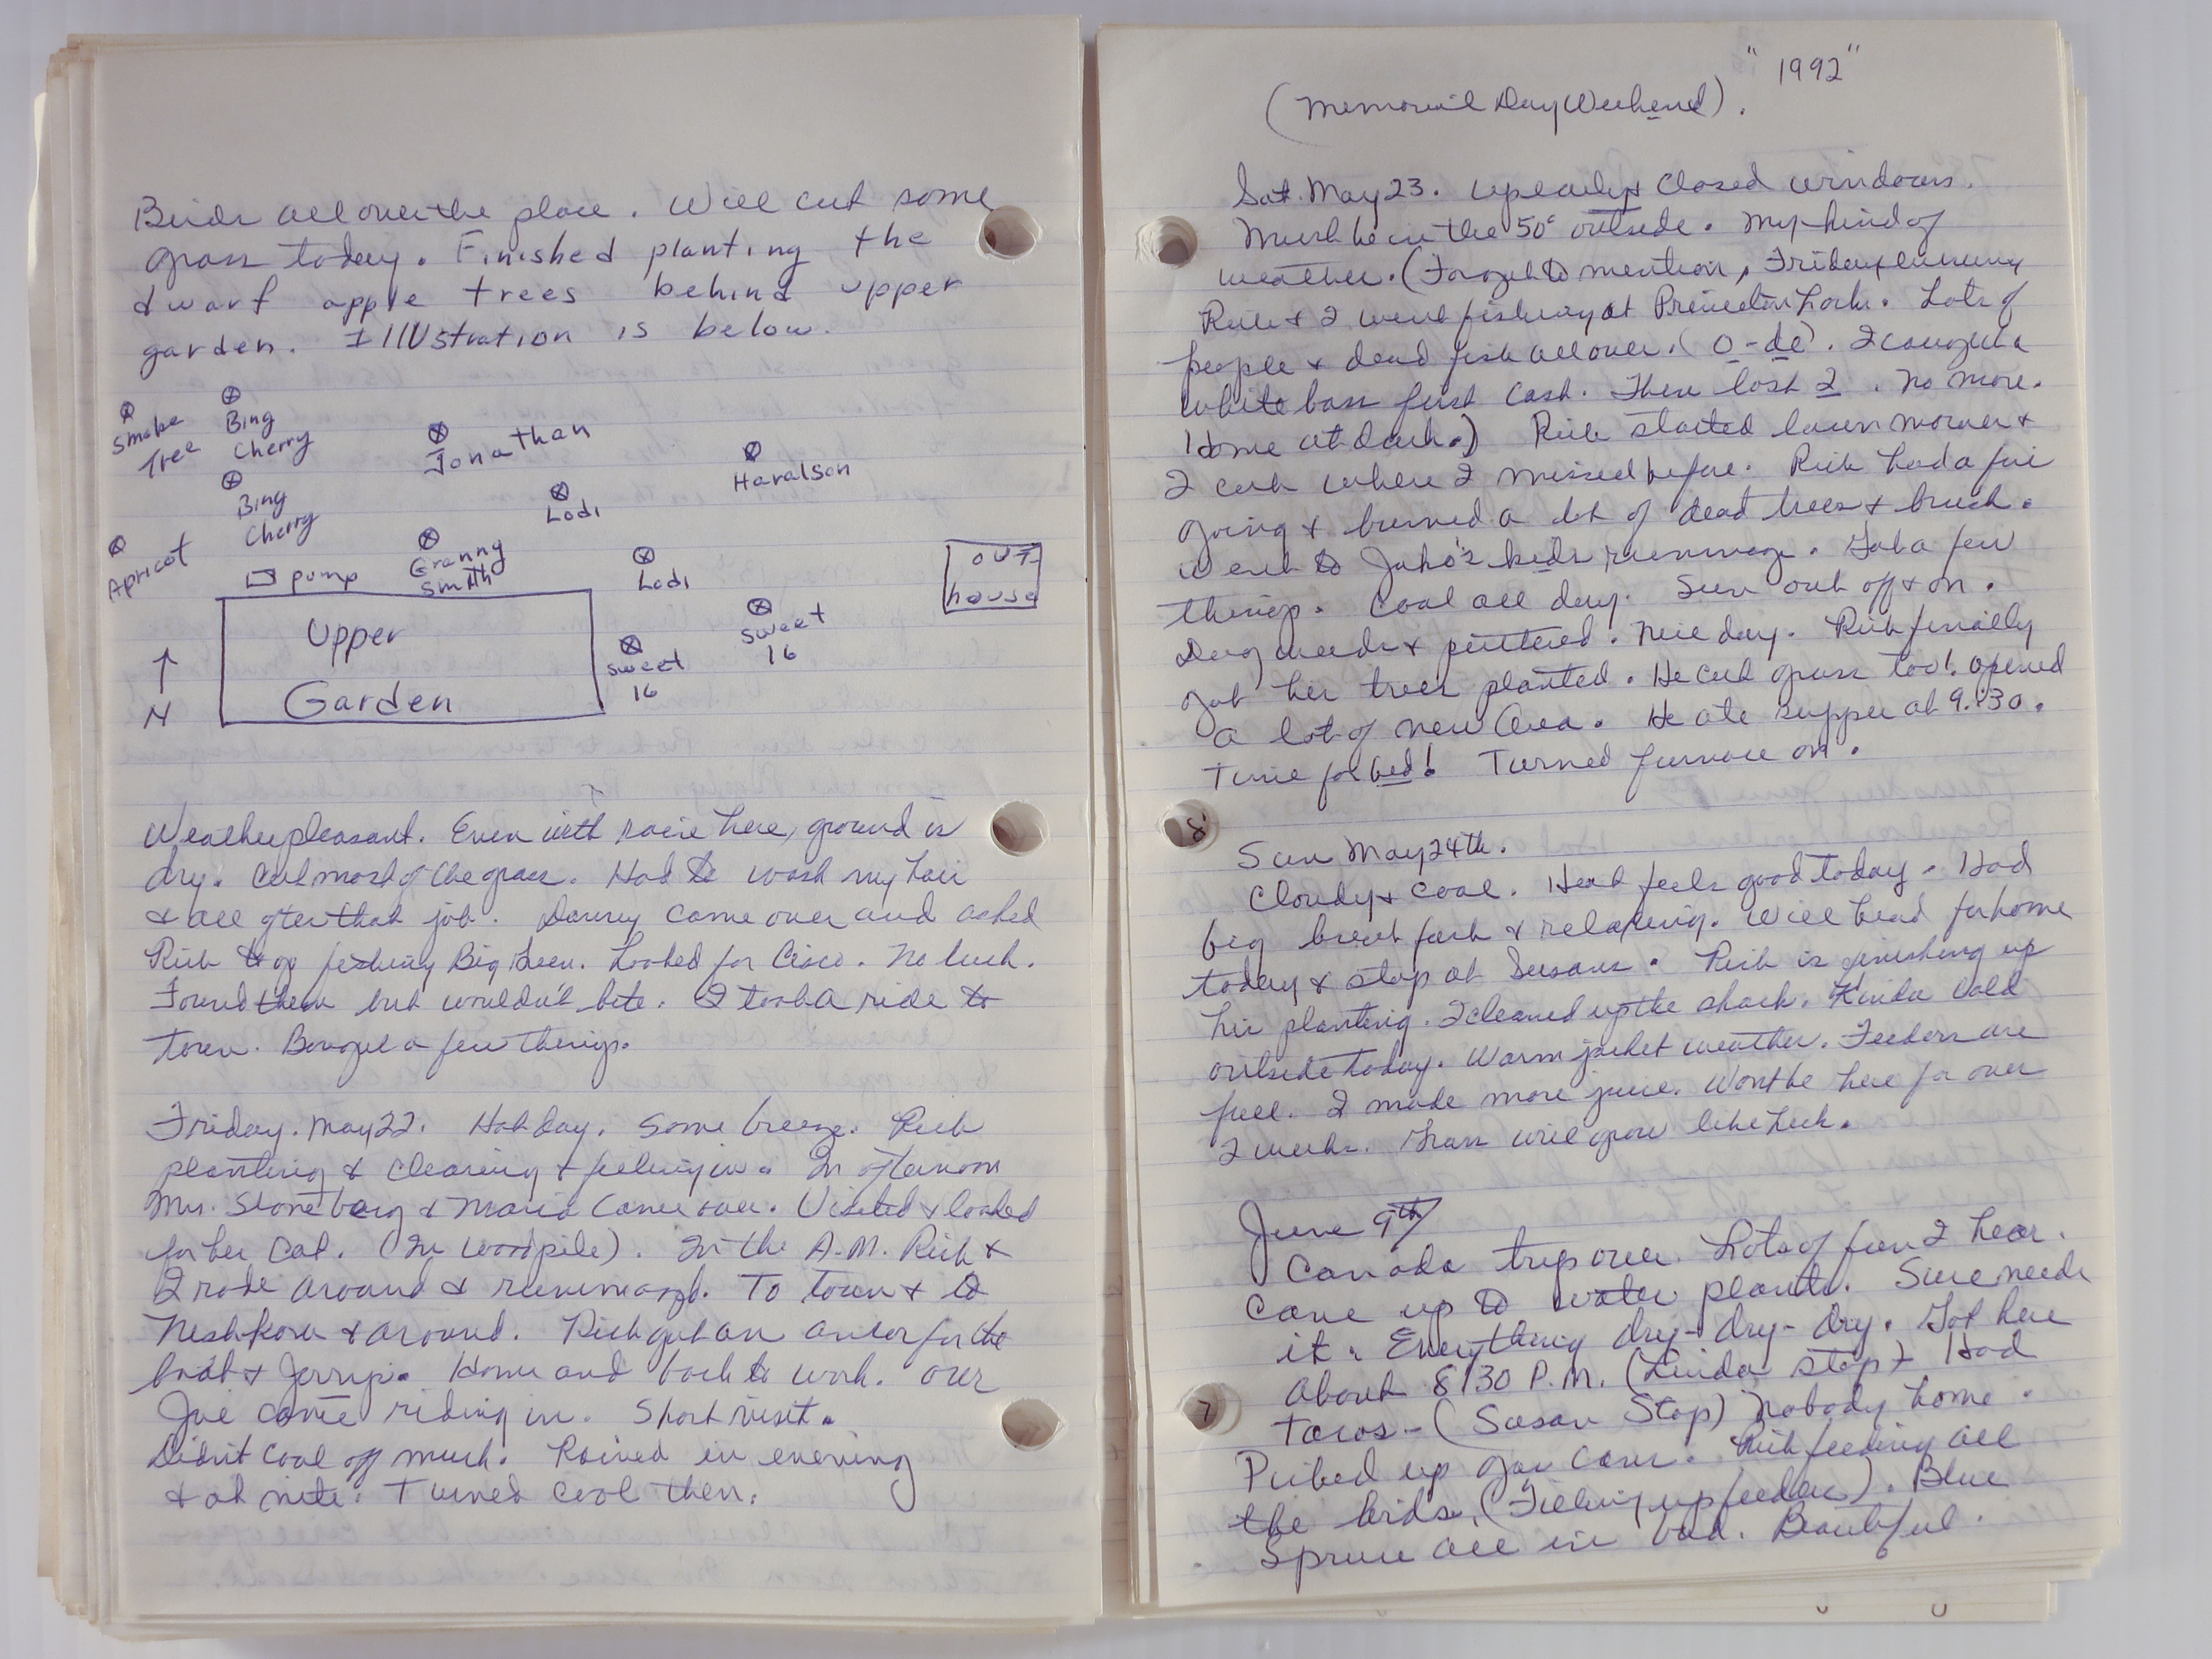 Birds all over the place. Will cut some
grass today. Finished planting the
dwarf apple trees behind upper
garden. Illustration is below.
Smoke
Tree
Bing
Cherry
Jonathan
Haralson
Bing
Cherry
Lodi
Apricot
pump
Granny
Smith
Lodi
out
house
Upper
Garden
Sweet
16
Sweet
16
↑
N
Weather pleasant. Even with rain here, ground is
dry. Cut most of the grass. Had to wash my hair
& all after that job. Danny came over and asked
Rick to go fishing Big Green. Looked for Cisco. No luck.
Found them but wouldn't bite. I took a ride to
town. Bought a few things.
Friday. May 22. Hot day. Some breeze. Rick
planting & clearing & filling in. In afternoon
Mrs. Stoneberg & Maria came over. Visited & looked
for her cat. (In woodpile). In the A.M. Rick &
I rode around & rummaged. To town & to
Neshkoro & around. Rick got an anker for the
boat & Jerrys. Home and back to work. Our
Joe came riding in. Short visit.
Didn't cool off much. Rained in evening
& at nite. Turned cool then.
"1992"
(Memorial Day Weekend).
Sat. May 23. Up early & closed windows.
Must be in the 50° outside. My kind of
weather. (Forgot to mention, Friday evening
Rick & I went fishing at Princeton Lock. Lots of
people & dead fish all over. (O-de). I caught a
white bass first cast. Then lost 2. No more.
Home at dark.) Rick started lawn mower &
I cut where I missed before. Rick had a fire
going & burned a lot of dead trees & brush.
Went to kids rummage. Got a few
things. Cool all day. Sun out off & on.
Dug weeds & puttered. Nice day. Rick finially
got his trees planted. He cut grass too! Opened
a lot of new area. He ate supper at 9:30.
Time for bed! Turned furnace on.
8
Sun May 24th.
Cloudy & cool. Heat feels good today. Had
big breakfast & relaxing. Will head for home
today & stop at Susans. Rick is finishing up
his planting. I cleaned up the shack. Kinda cold
outside today. Warm jacket weather. Feeders are
full. I made more juice. Wont be here for over
2 weeks. Grass will grow like heck.
June 9th
Canada trip over. Lots of fun I hear.
Came up to water plants. Sure needs
it. Everything dry-dry-dry. Got here
about 8:30 P.M. (Linda stop & Had
7
Tacos - (Susan Stop) Nobody home.
Picked up gas cans. Rick feeding all
the birds. (Filling up feeders). Blue
Spruce all in bud. Beautiful.